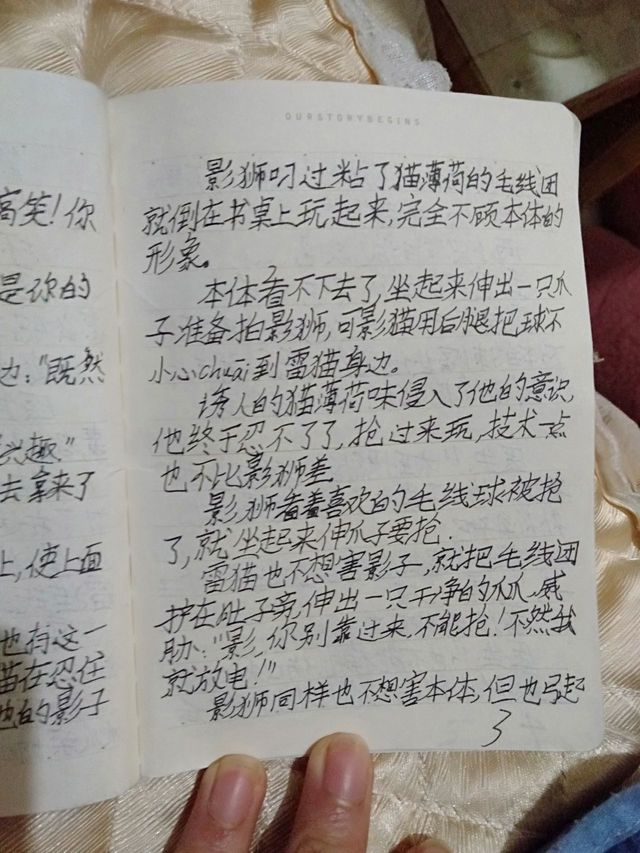 OURSTORYBEGINS
搞笑！你
是你的
边："既然
兴趣"
去拿来了
上，使上面
也有这一
猫在忍住
他的影子
影狮叼过粘了猫薄荷的毛线团
就倒在书桌上玩起来，完全不顾本体的
形象。
本体看不下去了，坐起来伸出一只爪
子准备拍影狮，可影猫用后腿把球不
小心chuai到雷猫身边。
诱人的猫薄荷味侵入了他的意识，
他终于忍不了了，抢过来玩，技术一点
也不比影狮差
影狮看着喜欢的毛线球被抢
了，就坐起来伸爪子要抢．
雷猫也不想害影子，就把毛线团
护在肚子旁，伸出一只干净的爪爪，威
胁："影，你别靠过来，不能抢！不然我
就放电！"
影狮同样也不想害本体，但也弓起
3